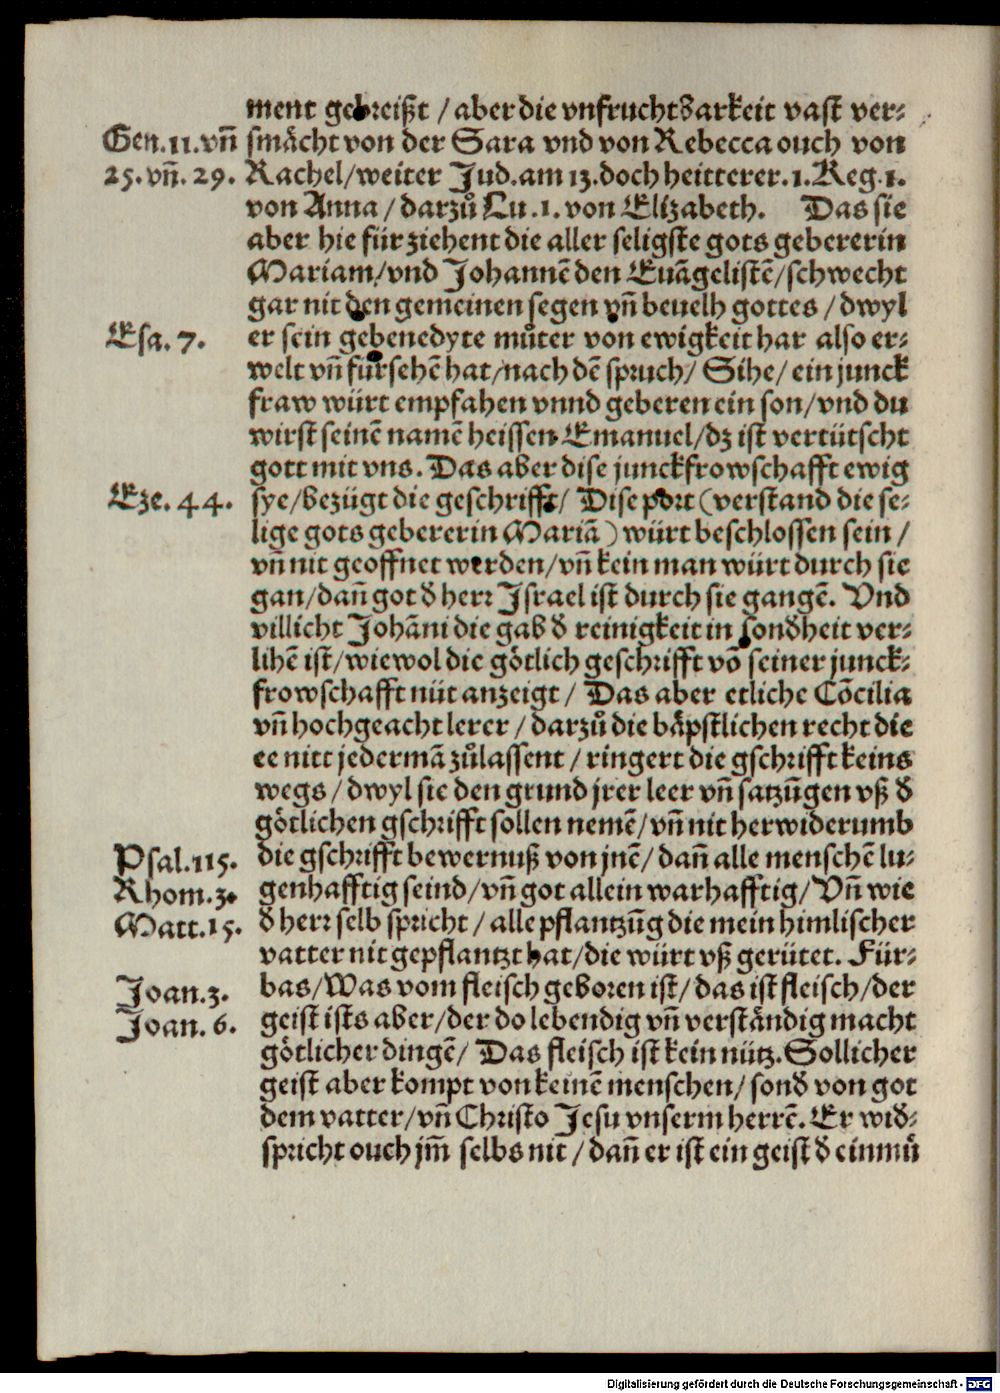 ment gebreißt / aber die vnfruchtbarkeit vast ver⸗
Gen. 11. vñ
smächt von der Sara vnd von Rebecca ouch von
25. vñ. 29.
Rachel/weiter Jud. am 13. doch heitterer. 1. Reg. 1.
von Anna / darzů Lu. 1. von Elizabeth. Das sie
aber hie für ziehent die aller seligste gots gebererin
Mariam/vnd Johannē den Euāgelistē/schwecht
gar nit den gemeinen segen vñ beuelh gottes / dwyl
Esa. 7.
er sein gebenedyte můter von ewigkeit har also er⸗
welt vñ fürsehē hat/nach dē spruch/ Sihe/ ein junck
fraw würt empfahen vnnd geberen ein son/vnd du
wirst seinē namē heissen Emanuel/dz ist vertütscht
gott mit vns. Das aber dise junckfrowschafft ewig
Eze. 44.
sye/bezügt die geschrifft/ Dise port (verstand die se⸗
lige gots gebererin Mariā) würt beschlossen sein /
vñ nit geoffnet werden/vñ kein man würt durch sie
gan/dañ got đ herr Israel ist durch sie gangē. Vnd
villicht Johāni die gab đ reinigkeit in sonđheit ver⸗
lihē ist/wiewol die götlich geschrifft vō seiner junck⸗
frowschafft nüt anzeigt / Das aber etliche Cōcilia
vñ hochgeacht lerer / darzů die bäpstlichen recht die
ee nitt jedermā zůlassent / ringert die gschrifft keins
wegs / dwyl sie den grund jrer leer vñ satzūgen vß đ
götlichen gschrifft sollen nemē/vñ nit herwiderumb
Psal. 115.
die gschrifft bewernuß von jnē/ dañ alle menschē lu⸗
Rhom. 3.
genhafftig seind/vñ got allein warhafftig/Vñ wie
Matt. 15.
đ herr selb spricht / alle pflantzūg die mein himlischer
vatter nit gepflantzt hat/die würt vß gerütet. Für⸗
Joan. 3.
bas/Was vom fleisch geboren ist/das ist fleisch/der
Joan. 6.
geist ists aber/der do lebendig vñ verständig macht
götlicher dingē/ Das fleisch ist kein nütz. Sollicher
geist aber kompt von keinē menschen/sonđ von got
dem vatter/vñ Christo Jesu vnserm herrē. Er wiđ⸗
spricht ouch jm̄ selbs nit / dañ er ist ein geist đ einmů
Digitalisierung gefördert durch die Deutsche Forschungsgemeinschaft - DFG